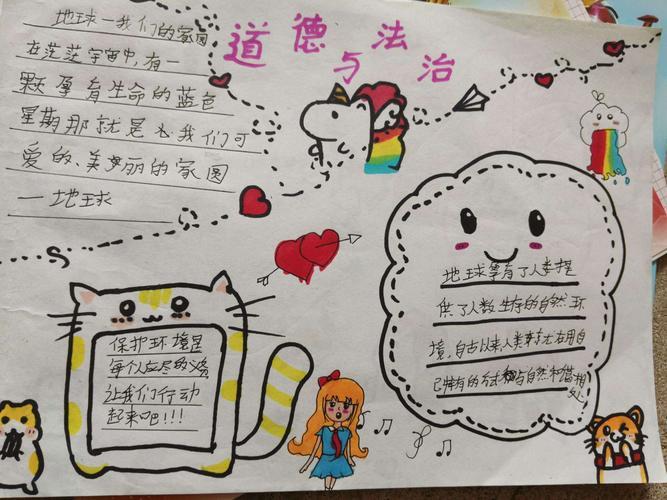 道德与法治
地球一我们的家园
在茫茫宇宙中,有一
颗孕育生命的蓝色
星期那就是 我们可
爱的、美 丽的家园
一地球
保护环境是
每个人应尽的义务
让我们行动
起来吧!!!
地球孕育了人类提
供了人数生存的自然环
境,自古以来,人类 在用自
己独有的方式 与自然和谐相
处